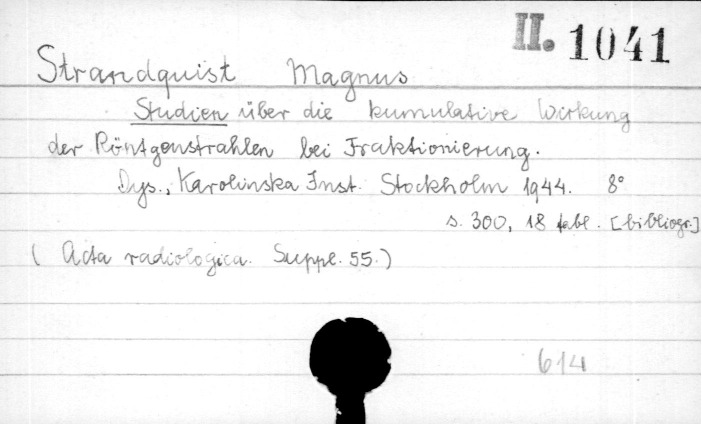 II. 1041
Strandquist Magnus
Studien über die kumulative Wirkung
der Röntgenstrahlen bei Fraktionierung.
Dys., Karolinska Inst. Stockholm 1944. 8°
s. 300, 18 tabl. [bibliogr.]
(Acta radiologica. Suppl. 55.)
614